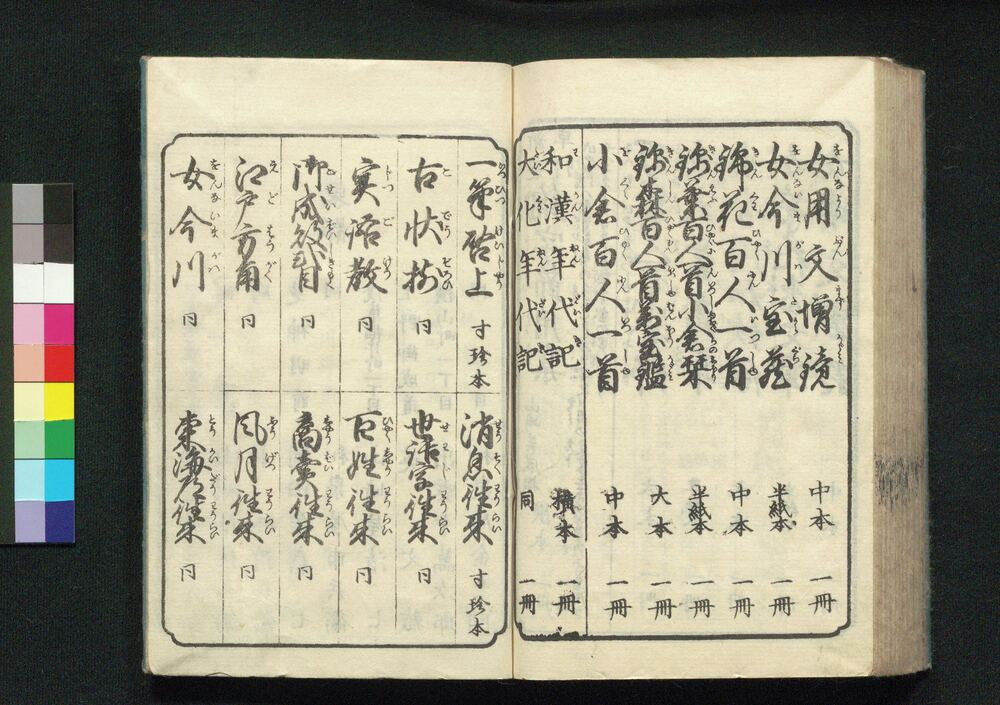 女用文増鏡 中本 一冊
女今川宝蔵 半紙本 一冊
錦花百人一首 中本 一冊
弥葉百人一首小倉栞 半紙本 一冊
弥森百人一首萬宝鑑 大本 一冊
小倉百人一首 中本 一冊
和漢年代記 横本 一冊
大化年代記 同 一冊
一筆啓上 寸珍本
古状揃 同
実語教 同
御成敗式目 同
江戸方角 同
女今川 同
消息往来 寸珍本
世話字往来 同
百姓往来 同
商売往来 同
風月往来 同
東海道往来 同